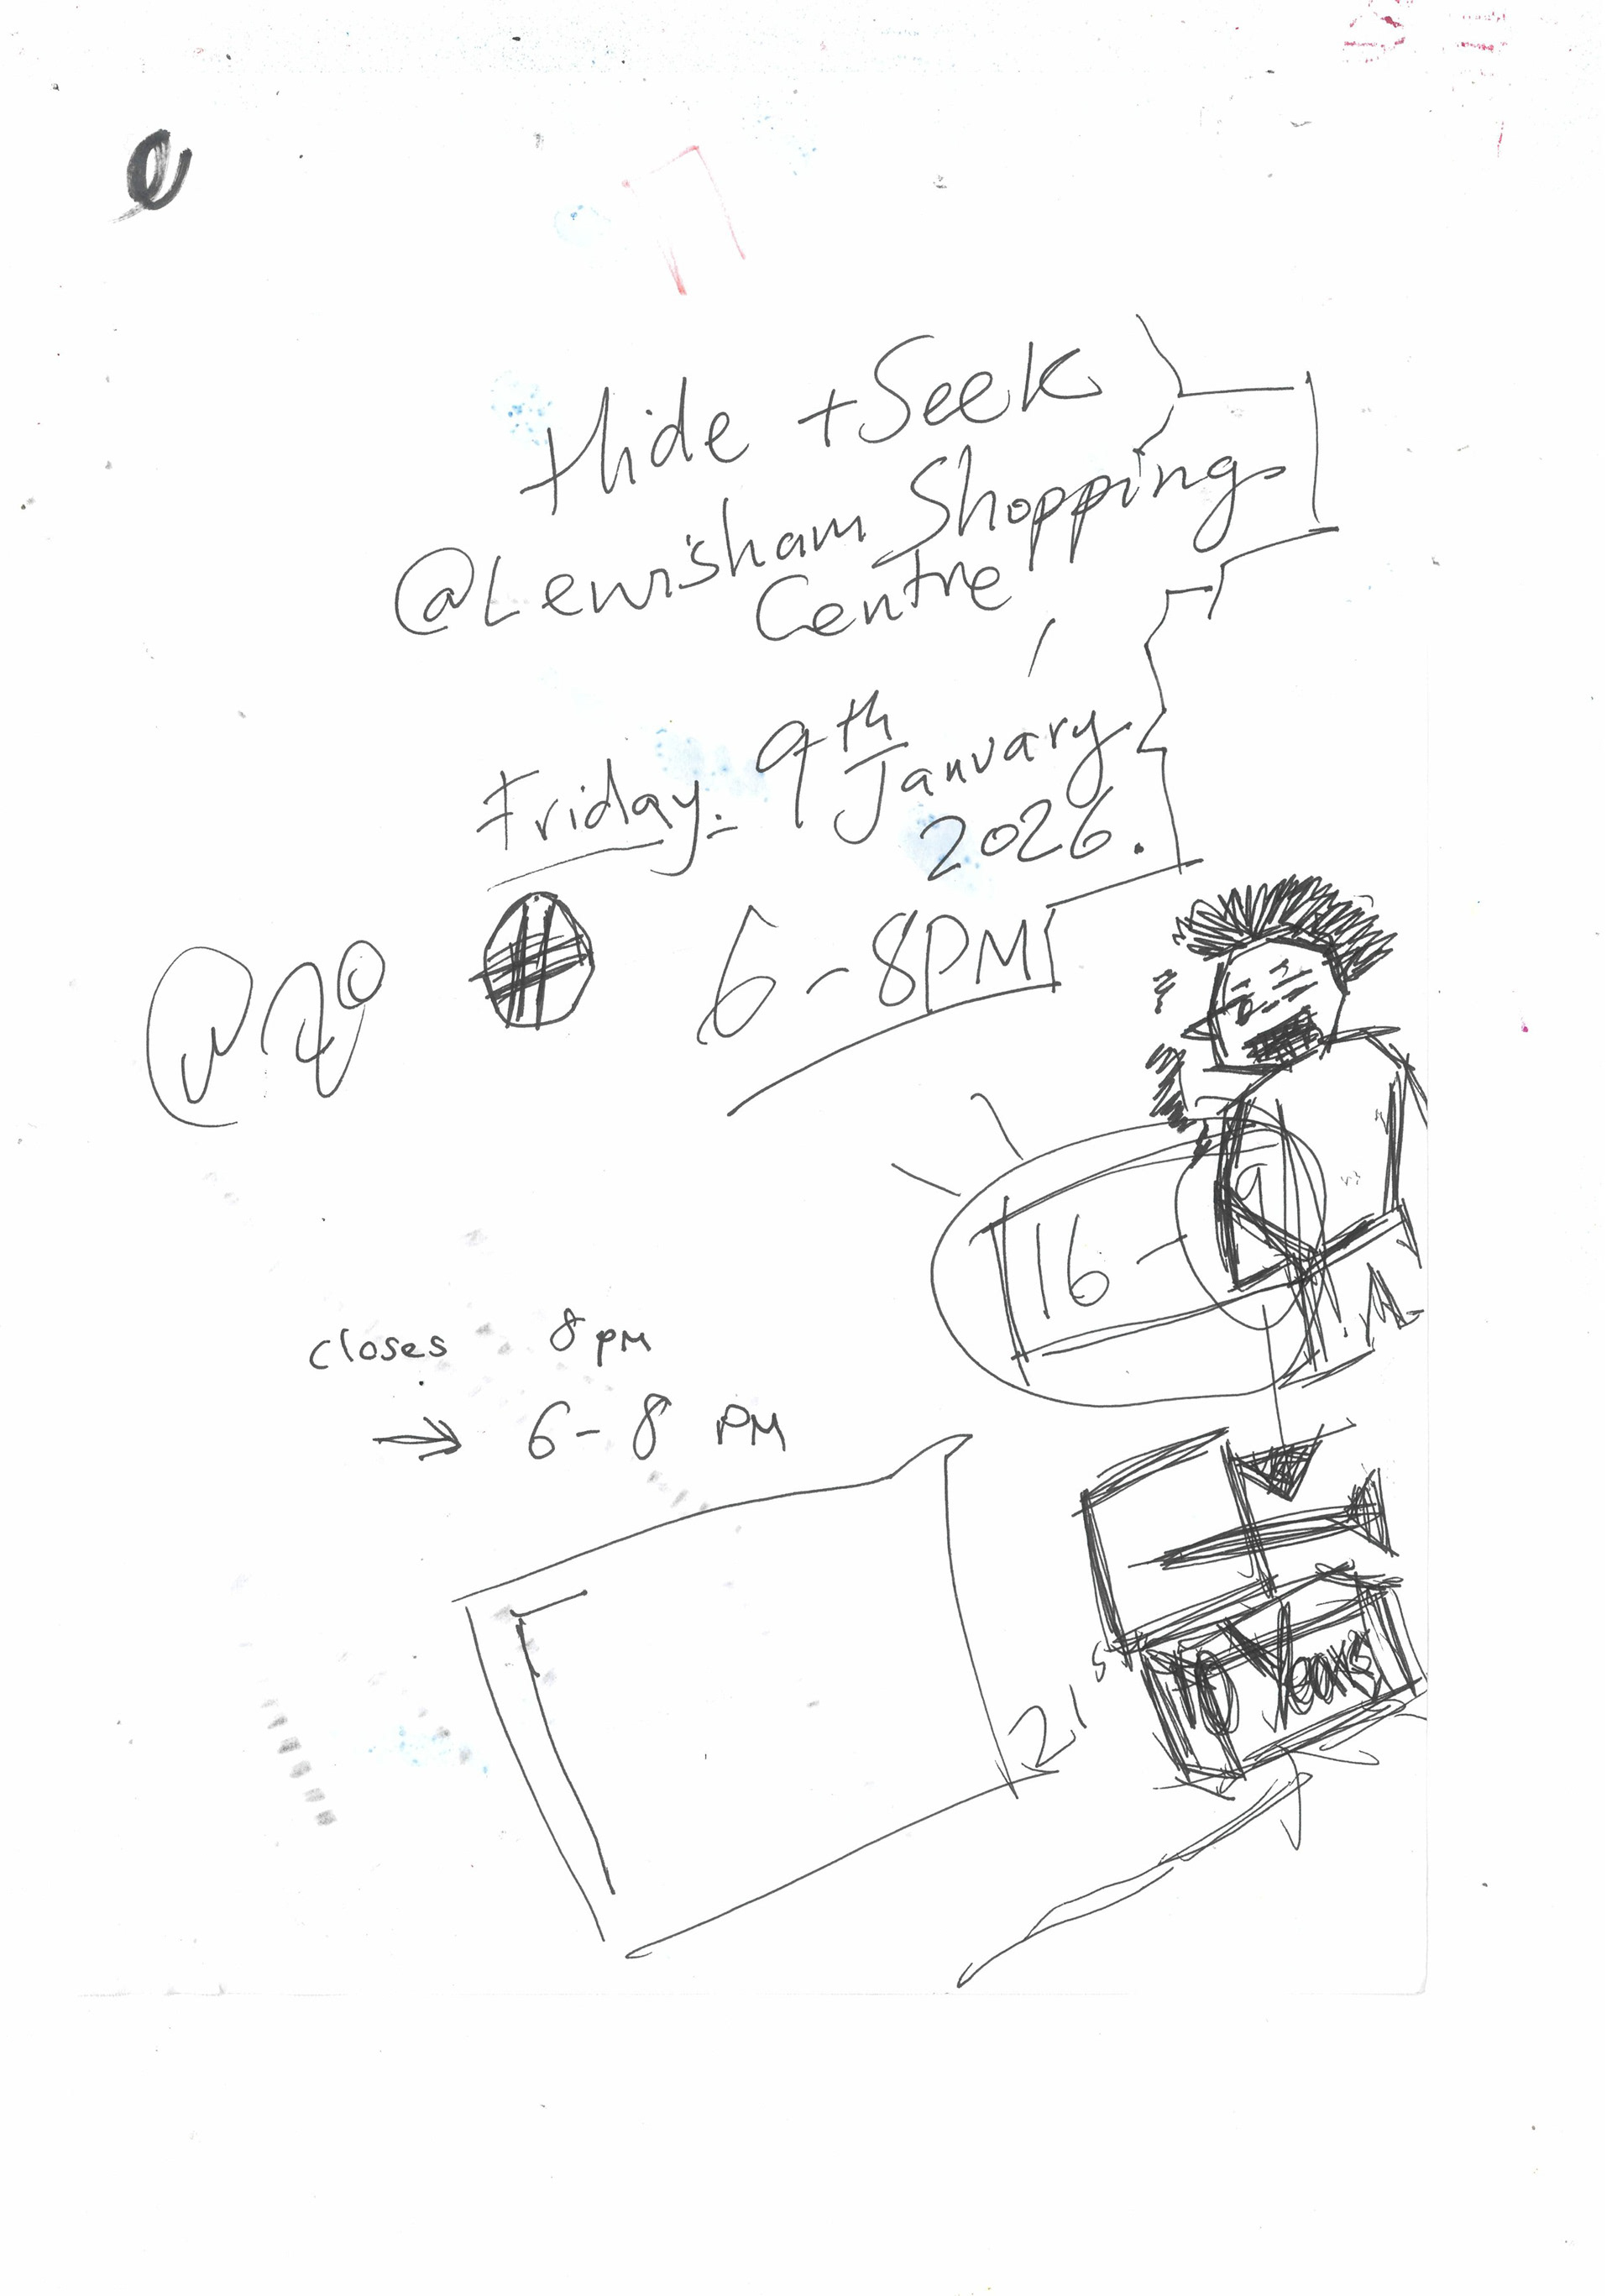 Hide + Seek
@Lewisham Shopping
Centre
Friday: 9th January
2026.
6-8PM
16 - 9
closes 8pm
→ 6-8 PM
21st
10 Years